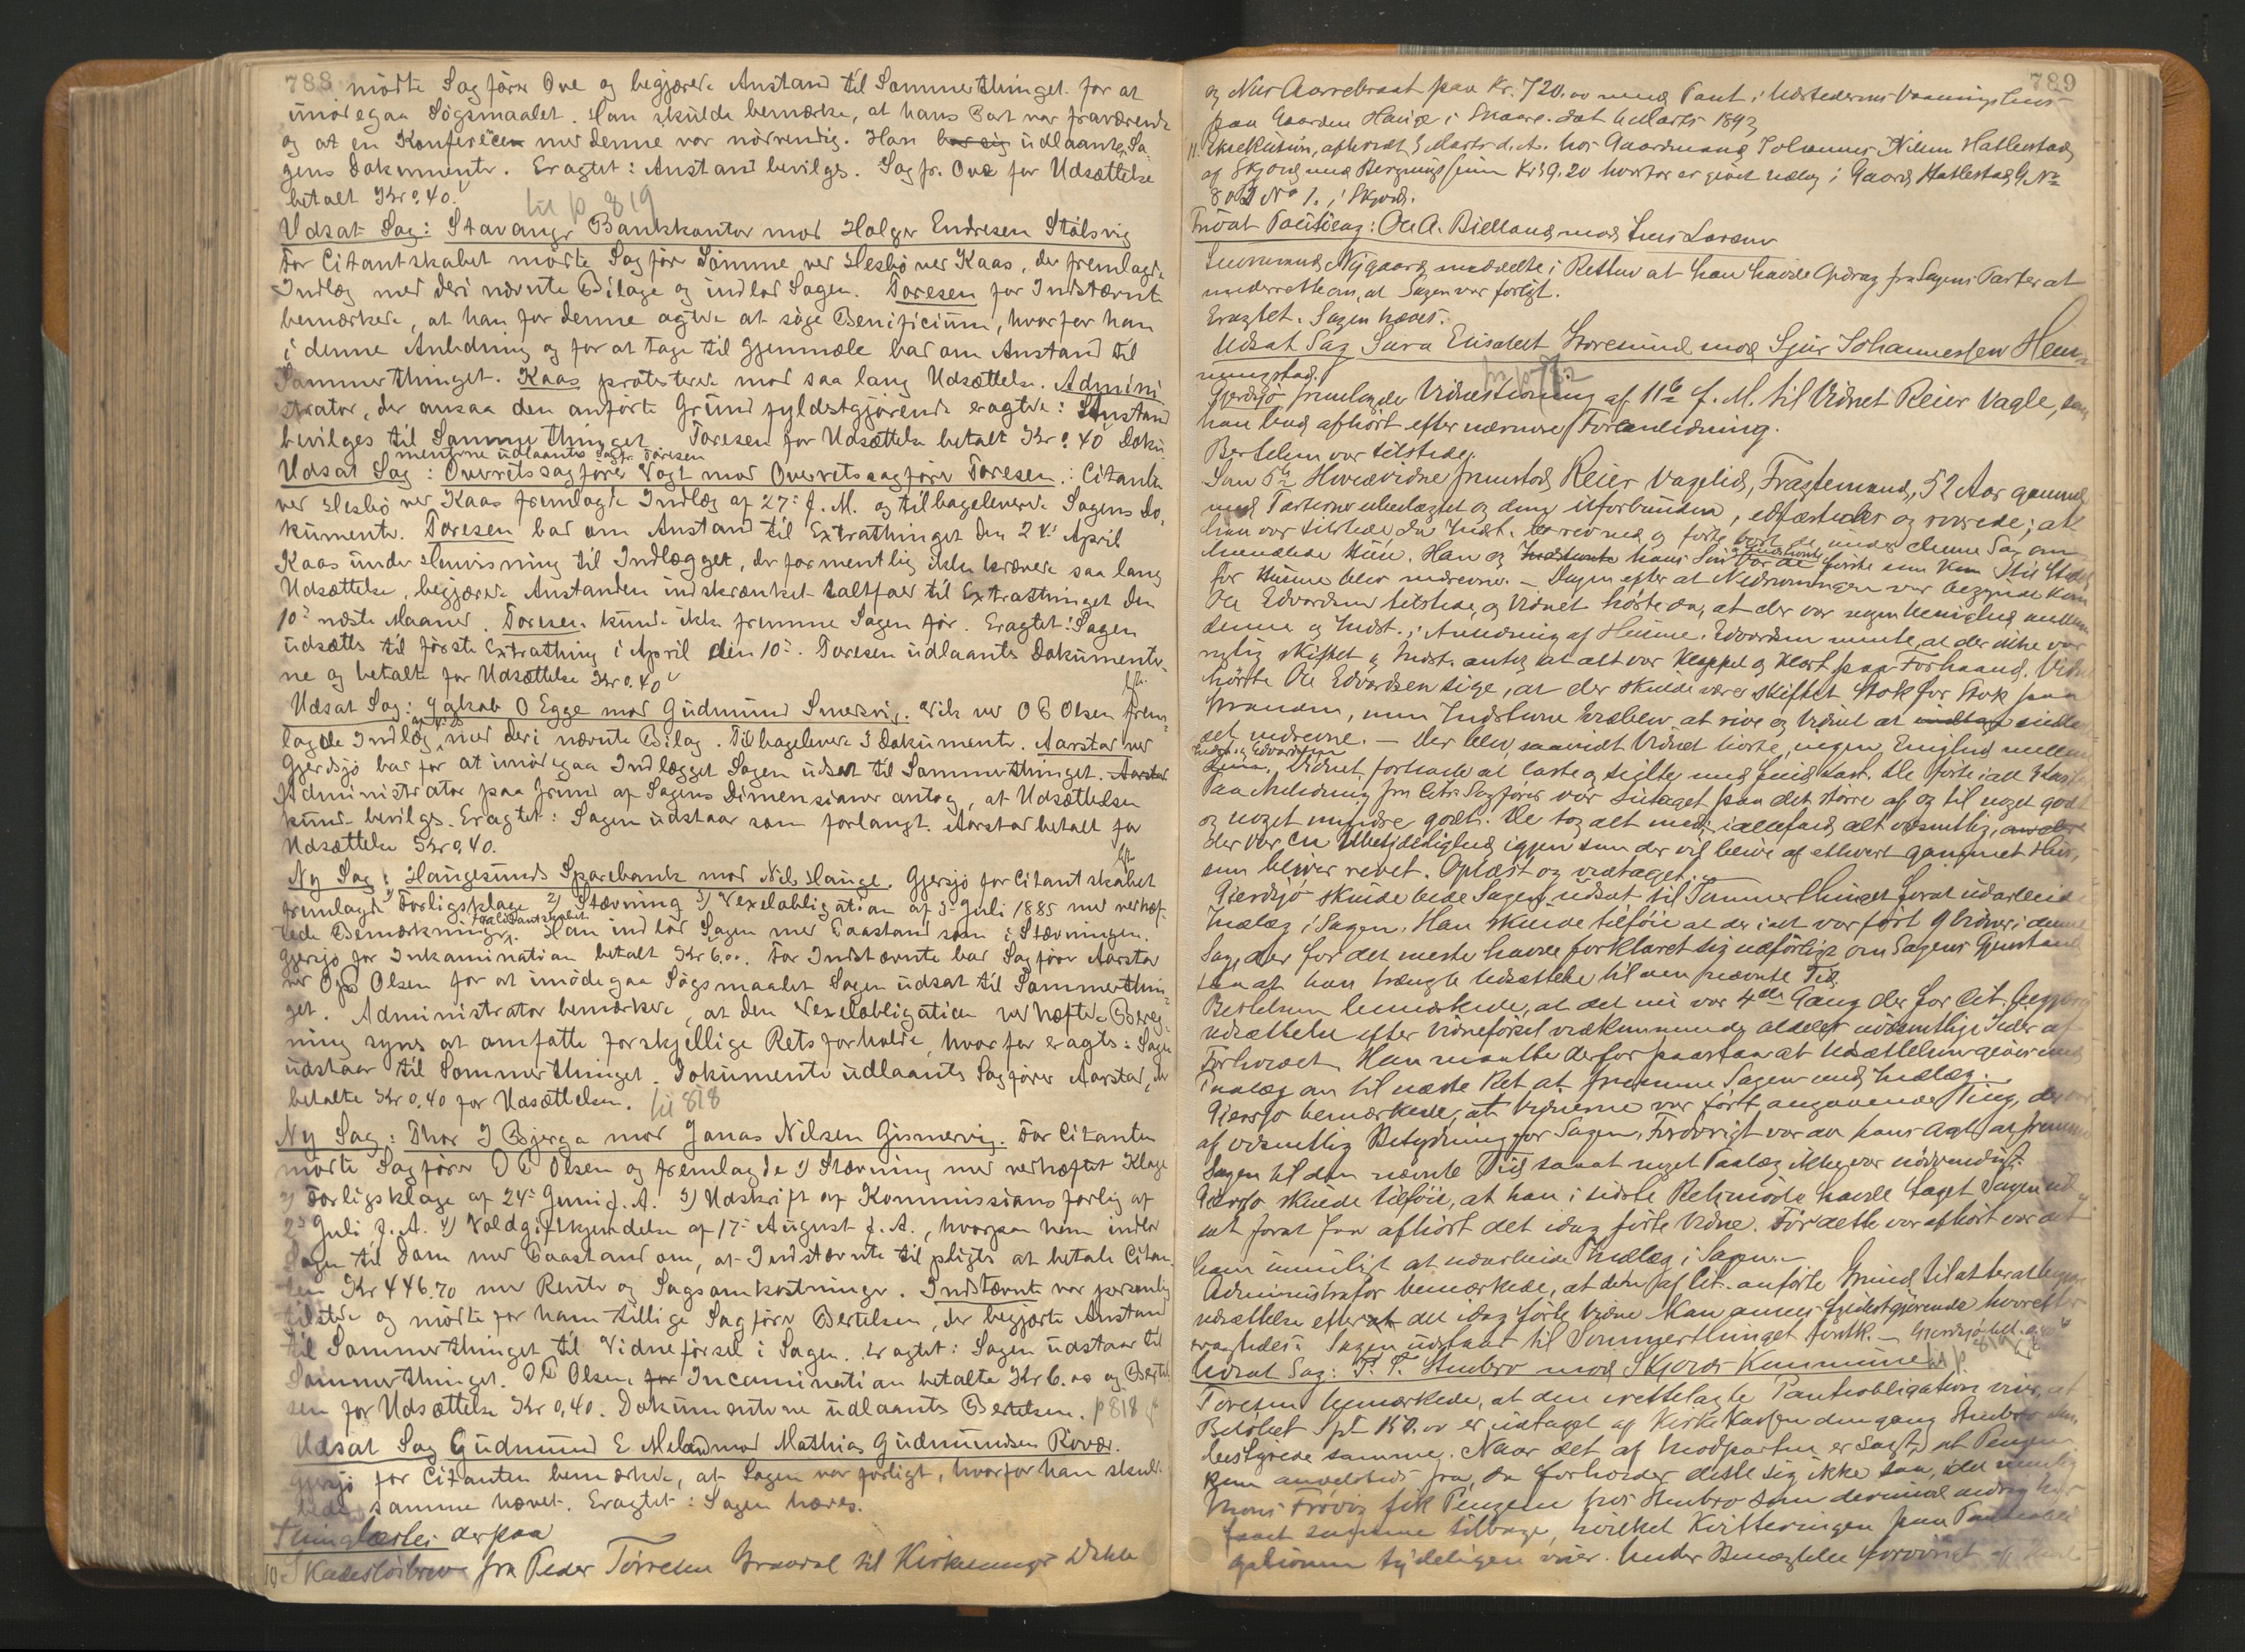 788 mödte Sagförer Ove og begjærede Anstand til Sommerthinget for at
imödegaa Sögsmaalet. Han skulde bemærke, at hans Part var fraværende
og at en Konferèce med denne var nödvendig. Han bar sig udlaante Sa¬
gens Dokumenter. Eragtet: Anstand bevilges. Sagfr. Ove for Udsættelse
betalt Kr 0.40.
til p 819
Udsat Sag: Stavanger Bankkontor mod Holger Endresen Stölsvig
For Citantskabet mödte Sagförer Sömme ved Hesbö ved Kaas, der fremlagde
Indlæg med deri nævnte Bilage og indlod Sagen. Toresen for Indstævnte
bemærkede, at han for denne agtede at söge Benificium, hvorfor han
i denne Anledning og for at tage til Gjenmæle bad om Anstand til
Sommerthinget. Kaas protesterede mod saa lang Udsættelse. Admini
strator, der ansaa den anförte Grund fyldestgjörende eragtede: Anstand
bevilges til Sommerthinget. Toresen for Udsættelse betalt Kr 0.40 Doku
menterne udlaantes Sagfr. Toresen
Udsat Sag: Overretssagförer Vogt mod Overretssagförer Toresen.: Citanten
ved Hesbö ved Kaas fremlagde Indlæg af 27: f. M. og tilbageleverede Sagens Do,
kumenter. Toresen bad om Anstand til Extrathinget den 24: April
Kaas under Henvisning til Indlægget, der formentlig ikke krævede saa lang
Udsættelse, begjærede Anstanden indskrænket ialtfald til Extrathinget den
10: næste Maaned. Toresen kunde ikke fremme Sagen för. Eragtet: Sagen
udsættes til förste Extrathing i April den 10:. Toresen udlaantes Dokumenter
ne og betalte for Udsættelse Kr 0.40
Udsat Sag: Jakob O Egge mod Gudmund Smersvig. Vik ved O E Olsen frem¬
lagde Indlæg med deri nævnte Bilag. Tilbageleverede Dokumenter. Aarstad ved
Gjerdsjö bad for at imödegaa Indlægget Sagen udsat til Sommerthinget. Aarstad
Administrator paa Grund af Sagens Dimensioner antog, at Udsættelsen
kunde bevilges. Eragtet: Sagen udstaar som forlangt. Aarstad betalt for
Udsættelse Kr 0.40.
Ny Sag: Haugesunds Sparebank mod Nils Hauge. Gjersjö for Citantskabet
fremlagde 1) Forligsklage 2) Stævning 3) Vexelobligation af 3: Juli 1885 med vedhæf¬
tede Bemærkninger. Han indlod Sagen med Paastand som i Stævningen.
Gjersjö for Inkamination betalt Kr 6.00. For Indstævnte bad Sagförer Aarstad
ved O E Olsen for at imödegaa Sögsmaalet Sagen udsat til Sommerthin¬
get. Administrator bemærkede, at den Vexelobligation vedhæftede Bereg¬
ning synes at omfatte forskjellige Retsforholde, hvorfor eragtes: Sagen
udstaar til Sommerthinget. Dokumenterne udlaantes Sagförer Aarstad, der
betalte Kr 0.40 for Udsættelsen. til 818
Ny Sag: Thor I Bjerga mod Jonas Nilsen Gismervig. For Citanten
mödte Sagförer O E Olsen og fremlagde 1) Stævning med vedhæftet Klage
2) Forligsklage af 24: Juni f. A. 3) Udskrift af Kommissions forlig af
2: Juli f. A. 4) Voldgiftkjendelse af 17: August f. A., hvorpaa han indlod
Sagen til Dom med Paastand om, at Indstævnte tilpligtes at betale Citan
ten Kr 446.70 med Renter og Sagsomkostninger. Indstævnte var personlig
tilstede og mödte for ham tillige Sagförer Bertelsen, der begjærte Anstand
til Sommerthinget til Vidneförsel i Sagen. Eragtet: Sagen udstaar til
Sommerthinget. O E Olsen for Incamination betalte Kr 6.00 og Bertel
sen for Udsættelse Kr 0,40. Dokumenterne udlaantes Bertelsen. p 818
Udsat Sag Gudmund E Meland mod Mathias Gudmundsen Rövær.
Gjersjö for Citanten bemærkede, at Sagen var forligt, hvorfor han skulde
bede samme hævet. Eragtet: Sagen hæves.
Thinglæstes derpaa
10 Skadeslösbrev fra Peder Törresen Gravdal til Kirkesanger Dahle
789
og Nils Aarrebraat paa Kr. 720.00 med Pant i Udstederens Vaaningshus
paa Gaarden Hauge i Skaare. dat 6 Marts 1893
11. Exekution, afholdt 3 Marts d. A. hos Gaardmand Johannes Nilsen Hatlestad
af Skjold med Bergningssum Kr 39.20 hvorfor er givet Udlæg i Gaard Hatlestad G No
80 B No 1. i Skjold.
Privat Politisag: Ole A. Bielland mod Lars Larsen
Lensmand Nygaard meddelte i Retten at han havde Opdrag fra Sagens Parter at
underrette om, at Sagen var forligt.
Eragtet. Sagen hæves.
Udsat Sag Sara Elisabet Storesund mod Sjur Johannessen Hem¬
mingstad.
Gjerdsjö fremlagde Vidnestevning af 11te f. M. til Vidnet Reier Vagle, som
han bad afhört efter nærmere Foranledning.
Bertelsen var tilstede.
Som 5te Hovedvidne fremstod Reier Vagelid, Fragtemand, 52 Aar gammel
med Parterne ubeslægtet og dem uforbunden, edfæstedes og svarede; at
han var tilstede da Indst. rev ned og förte bort de under denne Sag om
handlede Huse. Han og hans Sön var de förste som kom til Stedet
för Husene blev nedrevne. — Dagen efter at Nedrivningen var begyndt kom
Ole Edvardsen tilstede, og Vidnet hörte da, at der var nogen Uenighed mellem
denne og Indst. i Anledning af Husene. Edvardsen mente, at der ikke var
rigtig skiftet og Indst. antog at alt var kleppet og klart paa Forhaand. Vidnet
hörte Ole Edvardsen sige, at der skulde være skiftet Stok for Stok paa
Grunden, men Indstevnte vedblev at rive og Vidnet at
det nedrevne. — Der blev saavidt Vidnet hörte, ingen Enighed mellem
Indst. og Edvardsen
Vidnet fortsatte at laste og seilte med fuld Last. De förte i alt 3 Laster
Paa Anledning fra Citr. Sagförer var Listaget paa det större af og til noget godt
og noget mindre godt. De tog alt med, iallefald alt væsentlig,
Der var en Ubetydelighed igjen som der vil blive af ethvert gammelt Hus,
som bliver revet. Oplæst og vedtaget.
Gjerdsjö skulde bede Sagen udsat til Sommerthinget forat udarbeide
Indlæg i Sagen. Han skulde tilföie at der i alt var fört 9 Vidner i denne
Sag, der for det meste havde forklaret sig udförlig om Sagens Gjenstand
saa at han trængte Udsættelse til den nævnte Tid.
Bertelsen bemærkede, at det nu var 4de Gang der for Cit. begjæres
udsættelse efter Vidneförsel vedkommende aldeles uvæsentlige Sider af
Forholdet. Han maatte derfor paastaa at Udsættelsen gives med
Paalæg om til næste Ret at fremme Sagen med Indlæg.
Gjersjö bemærkede, at Vidnerne var fört angaaende Ting, der var
af væsentlig Betydning for Sagen. Forövrigt var det hans Agt at fremme
Sagen til den nævnte Tid saaat noget Paalæg ikke var nödvendigt.
Gjersjö skulde tilföie, at han i sidste Retsmöde havde taget Sagen ud¬
sat forat faa afhört det idag förte Vidne. För dette var afhört var det
ham umuligt at udarbeide Indlæg i Sagen.
Administrator bemærkede, at den af Cit. anförte Grund til atter at begjære
udsættelse efterat det idag förte Vidne kan ansees fyldestgjörende hvorefter
eragtedes: Sagen udstaar til Sommerthinget forelk. — Gjerdsjö bet. 0.40
Udsat Sag: T. T. Stubro mod Skjolds Kommune til p. 819
Toresen bemærkede, at den irettelagte Panteobligation viser, at
Belöbet Spd 150.00 er udtaget af Kirkekassen dengang Stubro
bestyrede samme. Naar det af Modparten er sagt, at Pengene
kom andetsteds fra, da forholder dette sig ikke saa, idet nemlig
Mons Frövig fik Pengene hos Stubro som dermed aldrig har
faaet samme tilbage, hvilket Kvitteringen paa Panteobli
gationen tydeligen viser. Under Benægtelse forövrigt af